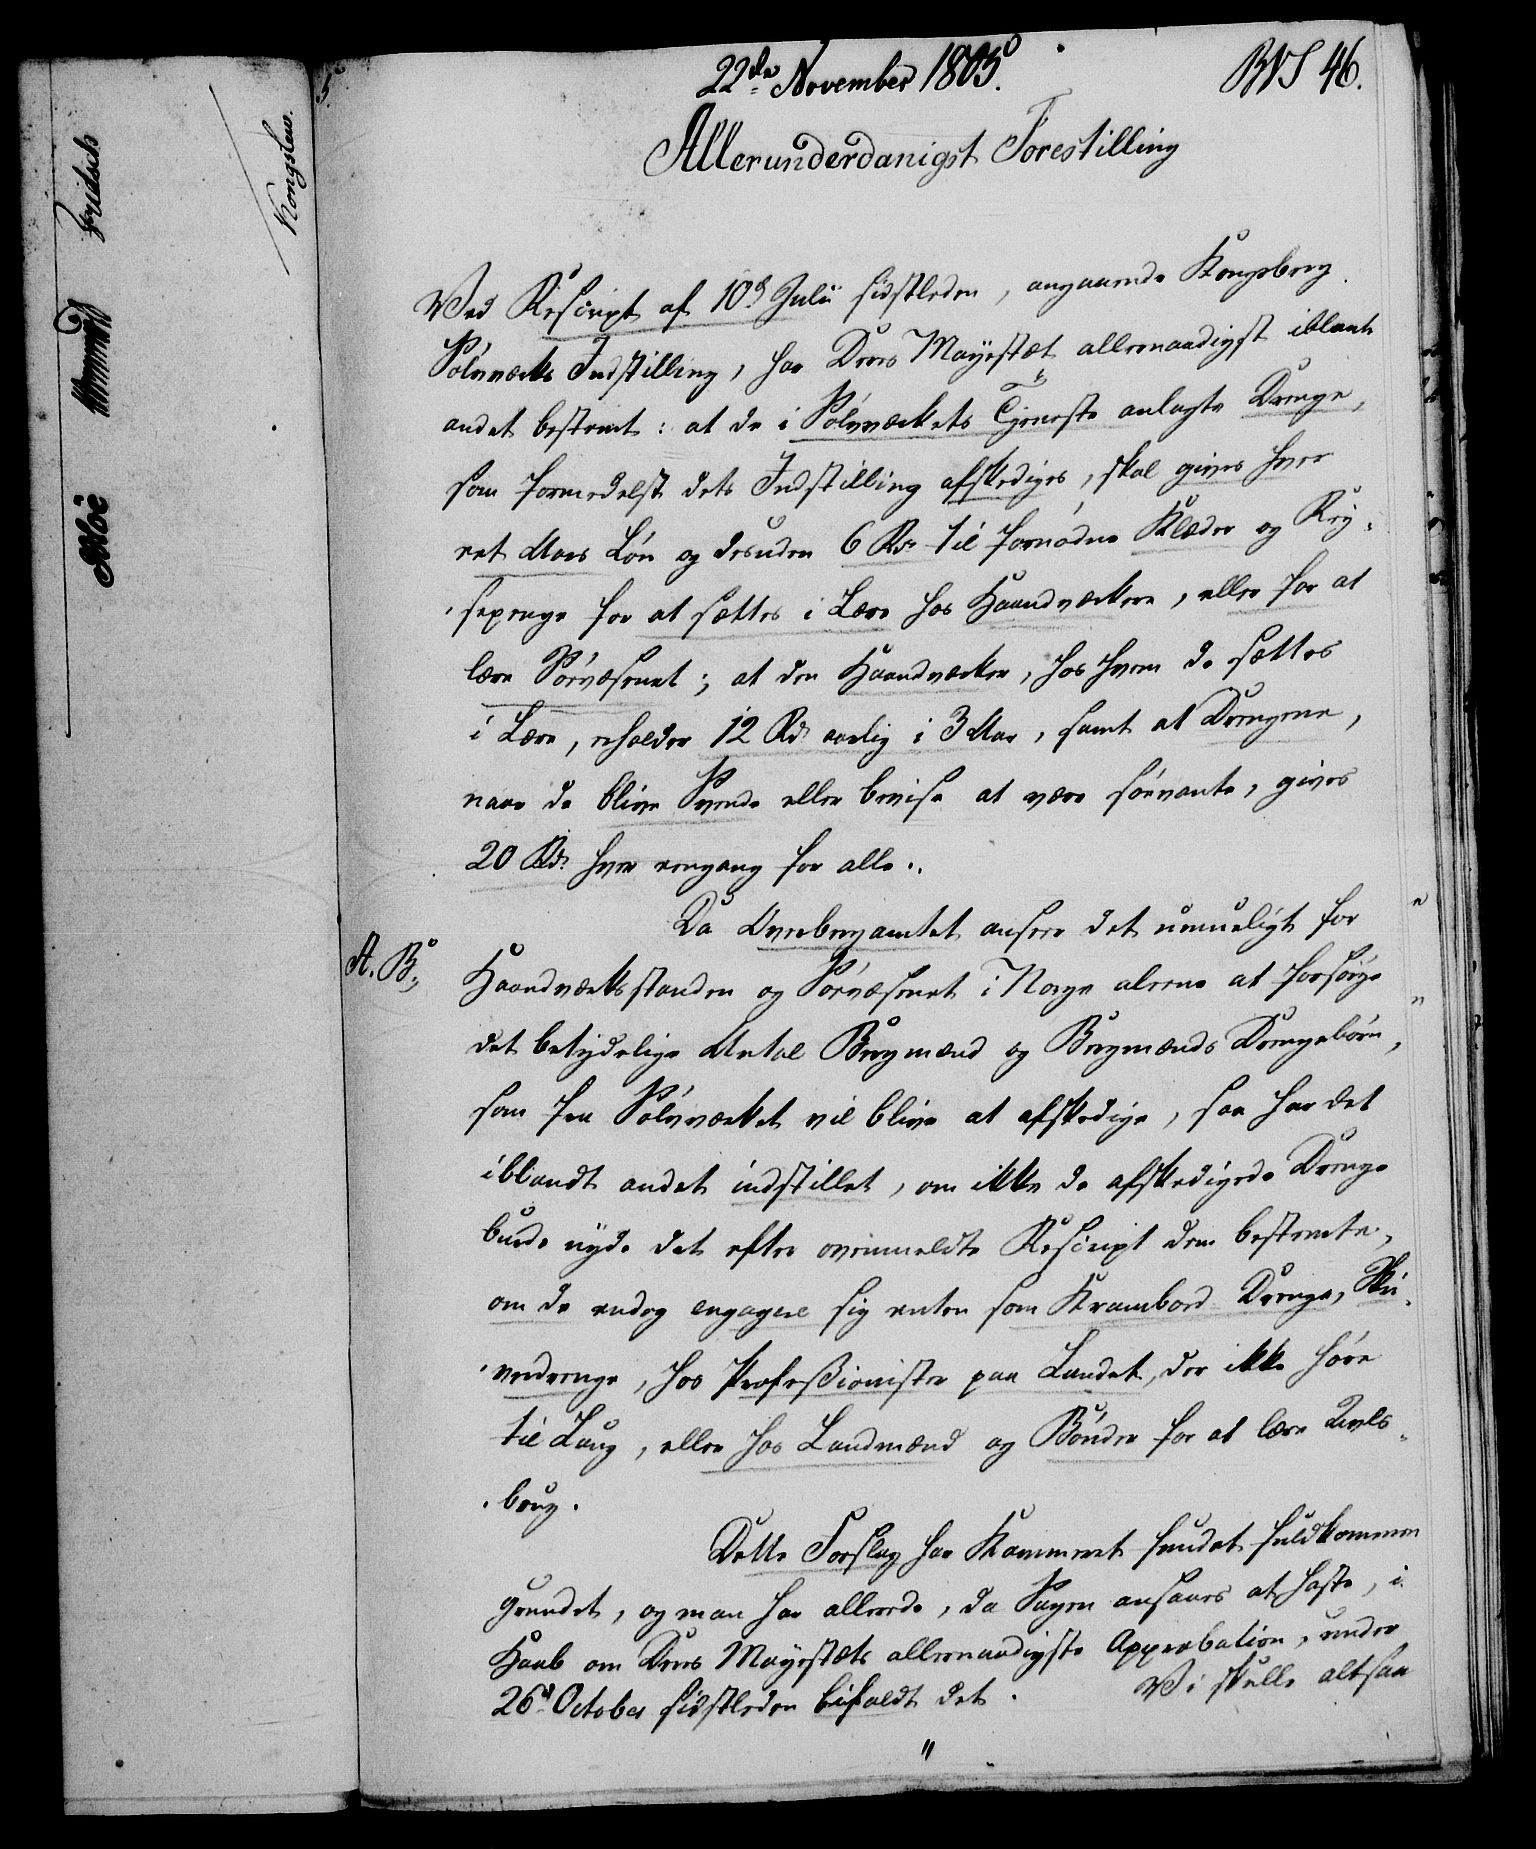 22de November 1805.
BVS 46.
Allerunderdanigst Forestilling
Ved Rescript af 10d Julii sidstleden, angaaende Kongsberg
Sölvværks Indstilling, har Deres Mayestæt allernaadigst iblant
andet bestemt: at de i Sölvværkets Tjeneste anlagte Drenge,
som formedelst dets Indstilling afskediges, skal gives hver
eet Aars Lön og desuden 6 Rd. til fornödne Klæder og Rej-
sepenge for at sættes i Lære hos Haandværkere, eller for at
lære Söevæsenet; at den Haandværker, hos hvem de sættes
i Lære, erholder 12 Rd. aarlig i 3 Aar, samt at Drengene,
naar de blive Svende eller bevise at være söevante, gives
20 Rd. hver eengang for alle.
Da Overbergamtet ansees det umueligt for
A. B.
Haandværksstanden og Söevæsenet i Norge alleene at forsörge
det betydelige Antal Bergmænd og Bergmænds Drengebörn,
som fra Sölvværket vil blive at afskedige, saa har det
iblandt andet indstillet, om ikke de afskedigede Drenge
burde nyde det efter ovenmeldte Rescript dem bestemte,
om de endog engagere sig enten som Krambod Drenge, Ski-
verdrenge, hos Profeßionister paa Landet, der ikke höre
til Laug, eller hos Landmænd og Bönder for at lære Avls-
brug.
Dette Forslag har Kammeret fundet fuldkommen
grundet, og man har allerede, da Sagen ansaaes at haste, i
Haab om Deres Mayestæts allernaadigste Approbation, under
26d October sidstleden bifaldt det.
Vi skulle altsaa
"
Kongslew.
Fridsch
Moe